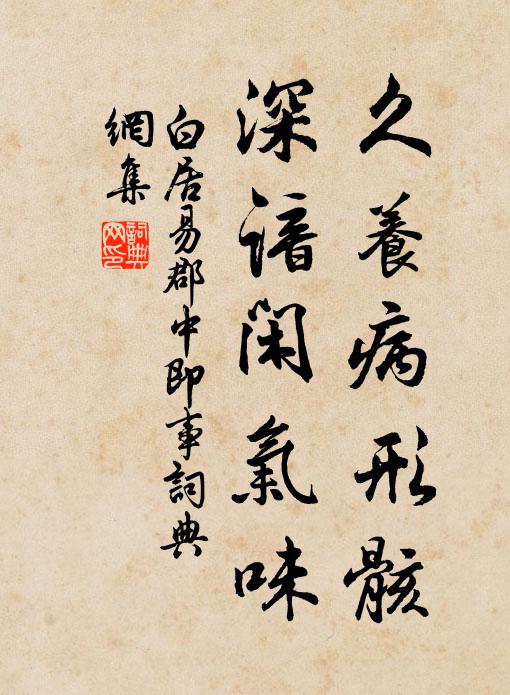 久養病形骸
深諳閑氣味
白居易郡中即事詞典
網集
詞典
网印